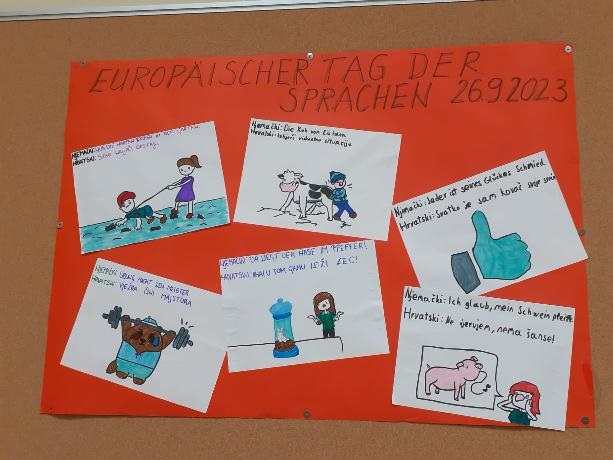 EUROPÄISCHER TAG DER
SPRACHEN 26.9.2023
HRVATSKI:
Njemački: Die Kuh vom Eis haben.
Hrvatski:
situaciju
Njemački: Jeder ist seines Glückes Schmied.
Hrvatski: Svatko je sam kovač svoje sreće
NJEMAČKI: ÜBUNG MACHT DEN MEISTER
HRVATSKI: VJEŽBA ČINI MAJSTORA
NJEMAČKI: DA LIEGT DER HASE IM PFEFFER!
HRVATSKI: U TOM GRMU LEŽI ZEC!
Njemački: Ich glaub, mein Schwein pfeift.
Hrvatski: Ne vjerujem, nema šanse!